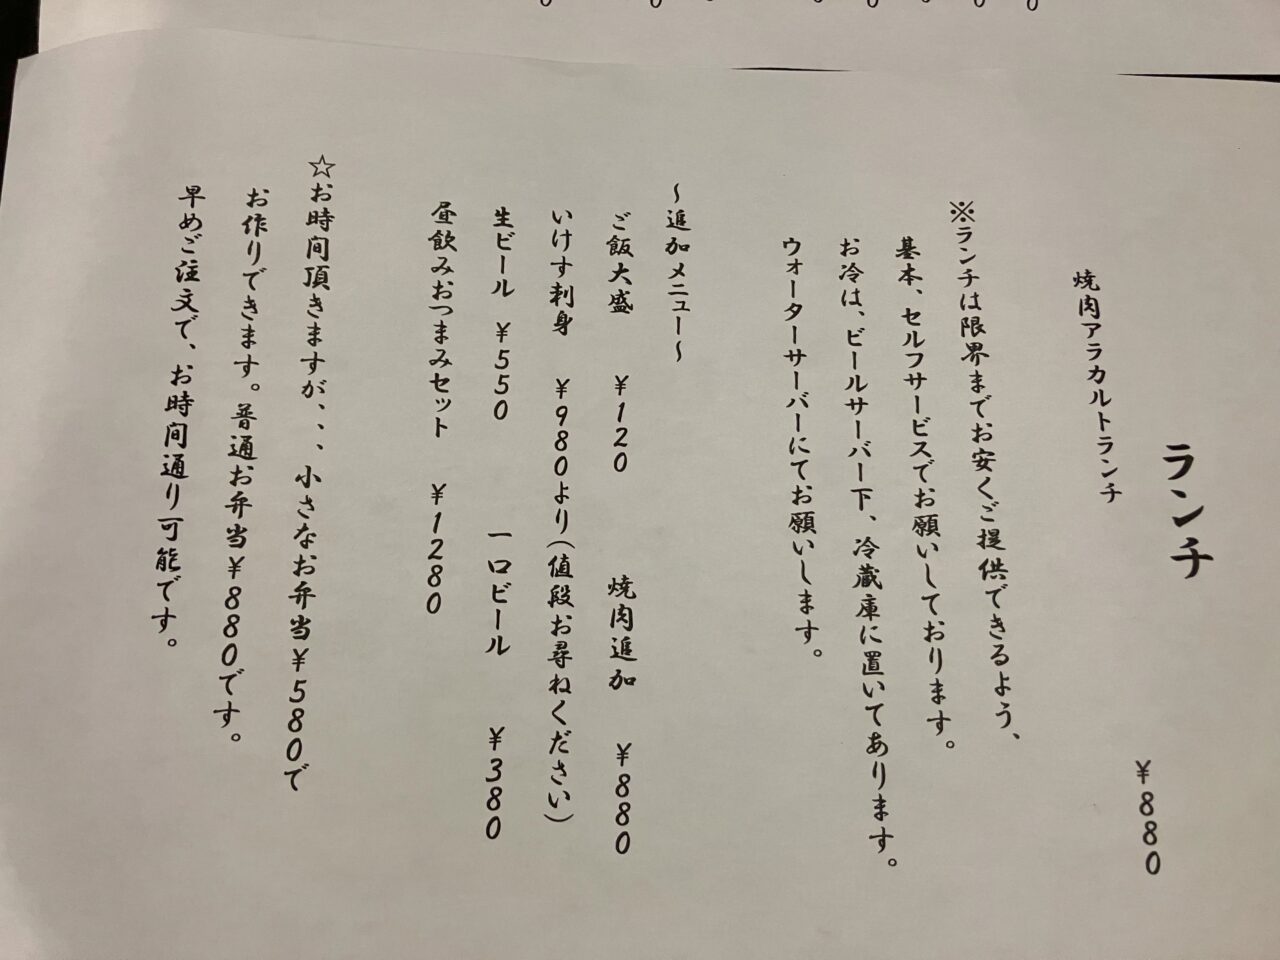 ランチ
焼肉アラカルトランチ ¥880
※ランチは限界までお安くご提供できるよう、
基本、セルフサービスでお願いしております。
お冷は、ビールサーバー下、冷蔵庫に置いてあります。
ウォーターサーバーにてお願いします。
～追加メニュー～
ご飯大盛 ¥120 焼肉追加 ¥880
いけす刺身 ¥980より(値段お尋ねください)
生ビール ¥550 一口ビール ¥380
昼飲みおつまみセット ¥1280
☆お時間頂きますが、、、小さなお弁当¥580で
お作りできます。普通お弁当¥880です。
早めご注文で、お時間通り可能です。